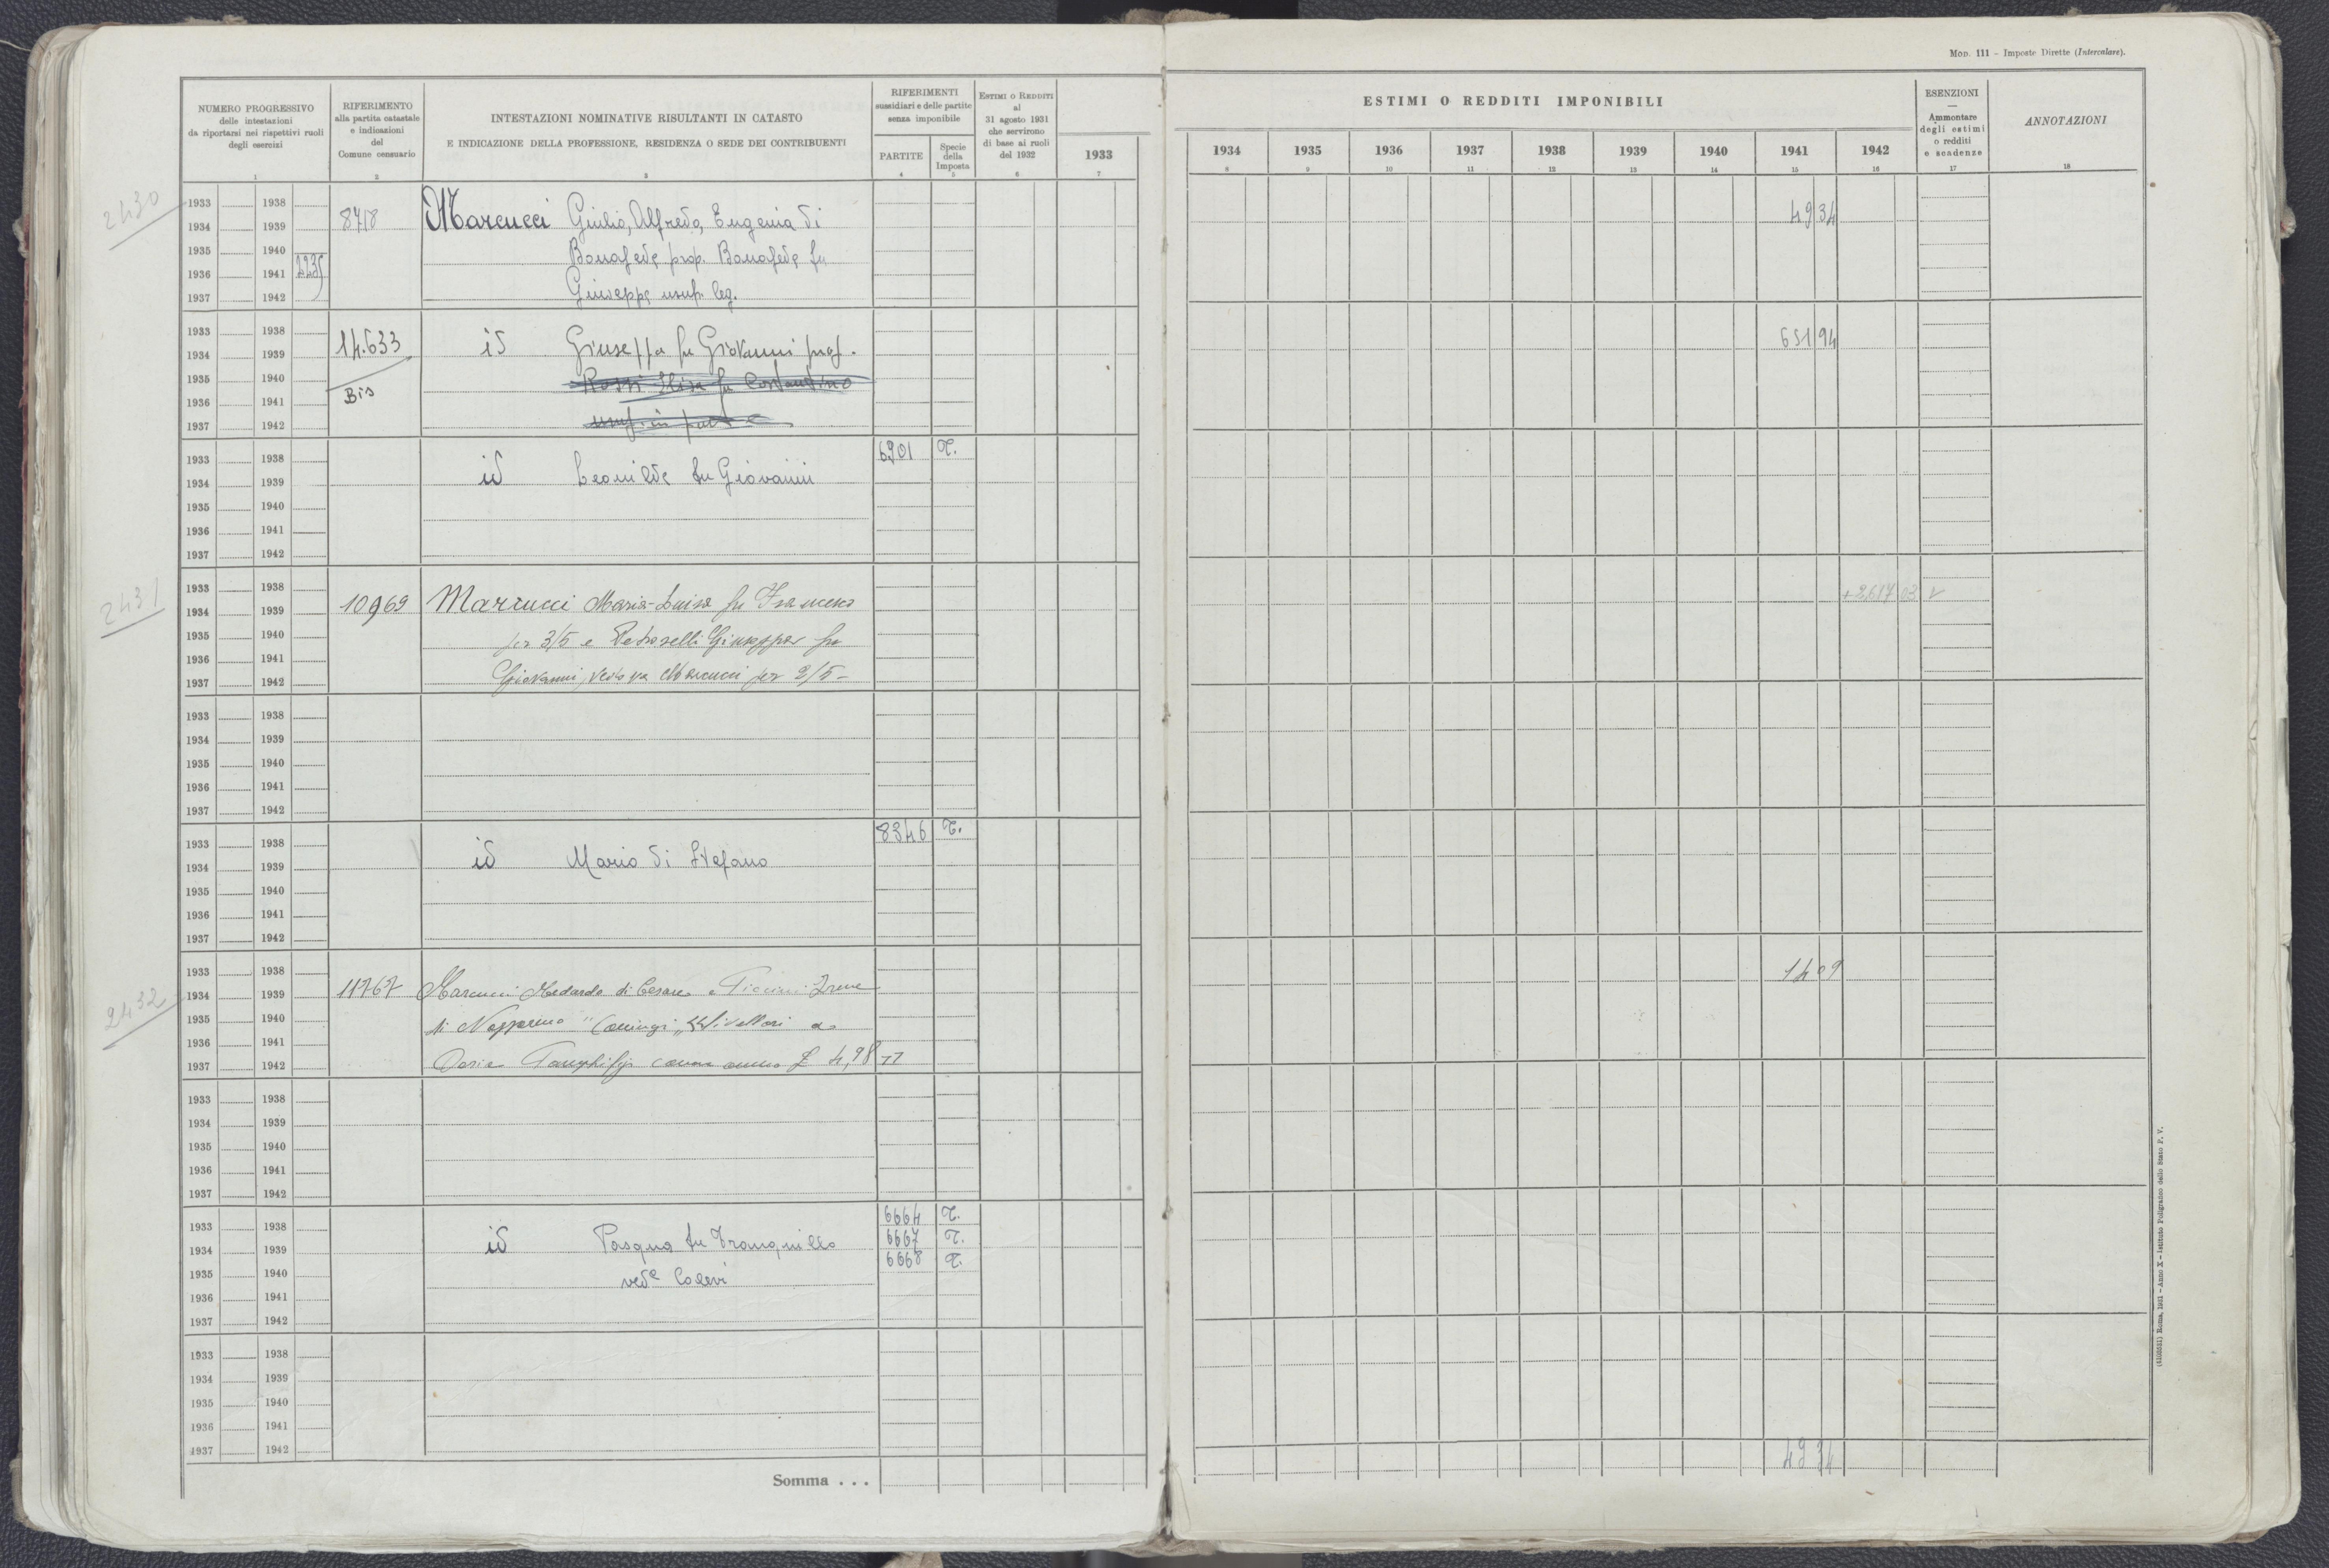 Mod. 111 – Imposte Dirette (Intercalare).
NUMERO PROGRESSIVO
delle intestazioni
da riportarsi nei rispettivi ruoli
degli esercizi
1
RIFERIMENTO
alla partita catastale
e indicazioni
del
Comune censuario
2
INTESTAZIONI NOMINATIVE RISULTANTI IN CATASTO
E INDICAZIONE DELLA PROFESSIONE, RESIDENZA O SEDE DEI CONTRIBUENTI
3
RIFERIMENTI
sussidiari e delle partite
senza imponibile
PARTITE
4
Specie
della
Imposta
5
ESTIMI O REDDITI
al
31 agosto 1931
che servirono
di base ai ruoli
del 1932
6
1933
7
ESTIMI O REDDITI IMPONIBILI
1934 1935 1936 1937 1938 1939 1940 1941 1942
8 9 10 11 12 13 14 15 16
ESENZIONI
—
Ammontare
degli estimi
o redditi
e scadenze
17
ANNOTAZIONI
18
2430
1933 1938
1934 1939 8718 Marcucci Giulio, Alfredo, Eugenia di 49 34
1935 1940 Bonafede prop. Bonafede fu
1936 1941 2235
1937 1942 Giuseppe usuf. leg.
1933 1938
1934 1939 14.633 id Giuseppa fu Giovanni 651 94
1935 1940 Rossi Elisa fu Costantino
1936 1941 Bis
1937 1942 usuf. in parte
1933 1938 6901 T.
1934 1939 id Leonilde fu Giovanni
1935 1940
1936 1941
1937 1942
2431
1933 1938
1934 1939 10969 Marcucci Maria-Luisa fu Francesco +2617 03 v
1935 1940 per 3/5 e Petroselli Giuseppa fu
1936 1941
1937 1942 Giovanni, vedova Marcucci per 2/5 –
1933 1938
1934 1939
1935 1940
1936 1941
1937 1942
1933 1938 8346 T.
1934 1939 id Mario di Stefano
1935 1940
1936 1941
1937 1942
2432
1933 1938
1934 1939 11767 Marcucci Medardo di Cesare e Piccini Irene 14 09
1935 1940 di Nazzareno "Coniugi" Livellari a
1936 1941
1937 1942 Doria Pamphilj canone annuo £ 4,98
1933 1938
1934 1939
1935 1940
1936 1941
1937 1942
1933 1938 6664 T.
1934 1939 id Pasqua fu Tranquillo 6667 T.
1935 1940 ved. 6668 T.
1936 1941
1937 1942
1933 1938
1934 1939
1935 1940
1936 1941
1937 1942
Somma . . . 49 34
Roma, 1931 – Anno X – Istituto Poligrafico dello Stato P. V.